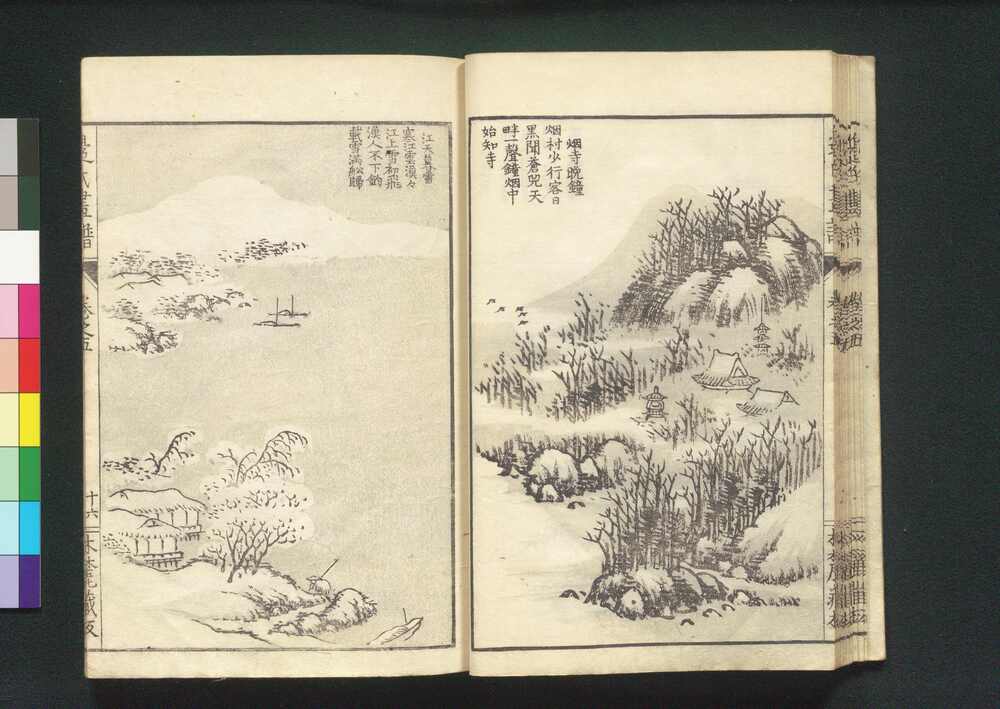 烟寺晩鐘
烟村少行客日
黒聞蒼兕天
畔一聲鐘烟中
始知寺
江天暮雪
寒江雲漠々
江上雪初飛
漁人不下釣
載雪満舩歸
氏畫譜
卷之五
十六